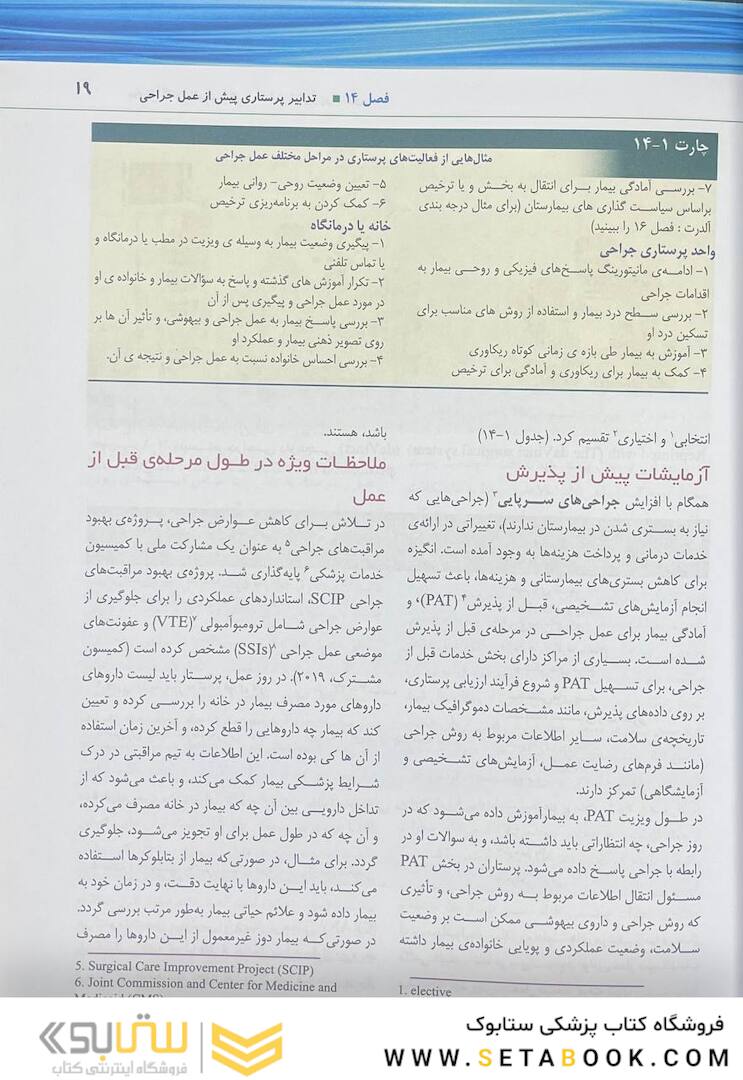 فصل ۱۴ ■ تدابیر پرستاری پیش از عمل جراحی
۱۹
چارت ۱-۱۴
مثال‌هایی از فعالیت‌های پرستاری در مراحل مختلف عمل جراحی
۷- بررسی آمادگی بیمار برای انتقال به بخش و یا ترخیص
براساس سیاست گذاری های بیمارستان (برای مثال درجه بندی
آلدرت : فصل ۱۶ را ببینید)
واحد پرستاری جراحی
۱- ادامه‌ی مانیتورینگ پاسخ‌های فیزیکی و روحی بیمار به
اقدامات جراحی
۲- بررسی سطح درد بیمار و استفاده از روش های مناسب برای
تسکین درد او
۳- آموزش به بیمار طی بازه ی زمانی کوتاه ریکاوری
۴- کمک به بیمار برای ریکاوری و آمادگی برای ترخیص
۵- تعیین وضعیت روحی- روانی بیمار
۶- کمک کردن به برنامه‌ریزی ترخیص
خانه یا درمانگاه
۱- پیگیری وضعیت بیمار به وسیله ی ویزیت در مطب یا درمانگاه و
یا تماس تلفنی
۲- تکرار آموزش های گذشته و پاسخ به سؤالات بیمار و خانواده ی او
در مورد عمل جراحی و پیگیری پس از آن
۳- بررسی پاسخ بیمار به عمل جراحی و بیهوشی، و تأثیر آن ها بر
روی تصویر ذهنی بیمار و عملکرد او
۴- بررسی احساس خانواده نسبت به عمل جراحی و نتیجه ی آن.
انتخابی۱ و اختیاری۲ تقسیم کرد. (جدول ۱-۱۴)
آزمایشات پیش از پذیرش
همگام با افزایش جراحی‌های سرپایی۳ (جراحی‌هایی که
نیاز به بستری شدن در بیمارستان ندارند)، تغییراتی در ارائه‌ی
خدمات درمانی و پرداخت هزینه‌ها به وجود آمده است. انگیزه
برای کاهش بستری‌های بیمارستانی و هزینه‌ها، باعث تسهیل
انجام آزمایش‌های تشخیصی، قبل از پذیرش۴ (PAT)، و
آمادگی بیمار برای عمل جراحی در مرحله‌ی قبل از پذیرش
شده است. بسیاری از مراکز دارای بخش خدمات قبل از
جراحی، برای تسهیل PAT و شروع فرآیند ارزیابی پرستاری،
بر روی داده‌های پذیرش، مانند مشخصات دموگرافیک بیمار،
تاریخچه‌ی سلامت، سایر اطلاعات مربوط به روش جراحی
(مانند فرم‌های رضایت عمل، آزمایش‌های تشخیصی و
آزمایشگاهی) تمرکز دارند.
در طول ویزیت PAT، به بیمارآموزش داده می‌شود که در
روز جراحی، چه انتظاراتی باید داشته باشد، و به سوالات او در
رابطه با جراحی پاسخ داده می‌شود. پرستاران در بخش PAT
مسئول انتقال اطلاعات مربوط به روش جراحی، و تأثیری
که روش جراحی و داروی بیهوشی ممکن است بر وضعیت
سلامت، وضعیت عملکردی و پویایی خانواده‌ی بیمار داشته
1. elective
باشد، هستند.
ملاحظات ویژه در طول مرحله‌ی قبل از
عمل
در تلاش برای کاهش عوارض جراحی، پروژه‌ی بهبود
مراقبت‌های جراحی۵ به عنوان یک مشارکت ملی با کمیسیون
خدمات پزشکی۶ پایه‌گذاری شد. پروژه‌ی بهبود مراقبت‌های
جراحی SCIP، استانداردهای عملکردی را برای جلوگیری از
عوارض جراحی شامل ترومبوآمبولی۷ (VTE) و عفونت‌های
موضعی عمل جراحی۸ (SSIs) مشخص کرده است (کمیسون
مشترک، ۲۰۱۹). در روز عمل، پرستار باید لیست داروهای
داروهای مورد مصرف بیمار در خانه را بررسی کرده و تعیین
کند که بیمار چه داروهایی را قطع کرده، و آخرین زمان استفاده
از آن ها کی بوده است. این اطلاعات به تیم مراقبتی در درک
شرایط پزشکی بیمار کمک می‌کند، و باعث می‌شود که از
تداخل دارویی بین آن چه که بیمار در خانه مصرف می‌کرده،
و آن چه که در طول عمل برای او تجویز می‌شود، جلوگیری
گردد. برای مثال، در صورتی‌که بیمار از بتابلوکرها استفاده
می‌کند، باید این داروها با نهایت دقت، و در زمان خود به
بیمار داده شود و علائم حیاتی بیمار به‌طور مرتب بررسی گردد.
در صورتی‌که بیمار دوز غیرمعمول از این داروها را مصرف
5. Surgical Care Improvement Project (SCIP)
6. Joint Commission and Center for Medicine and
فروشگاه کتاب پزشکی ستابوک
WWW.SETABOOK.COM
ستابوک
فروشگاه اینترنتی کتاب